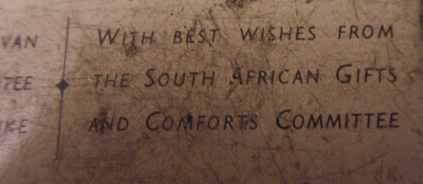 VAN
TEE
KE
WITH BEST WISHES FROM
THE SOUTH AFRICAN GIFTS
AND COMFORTS COMMITTEE